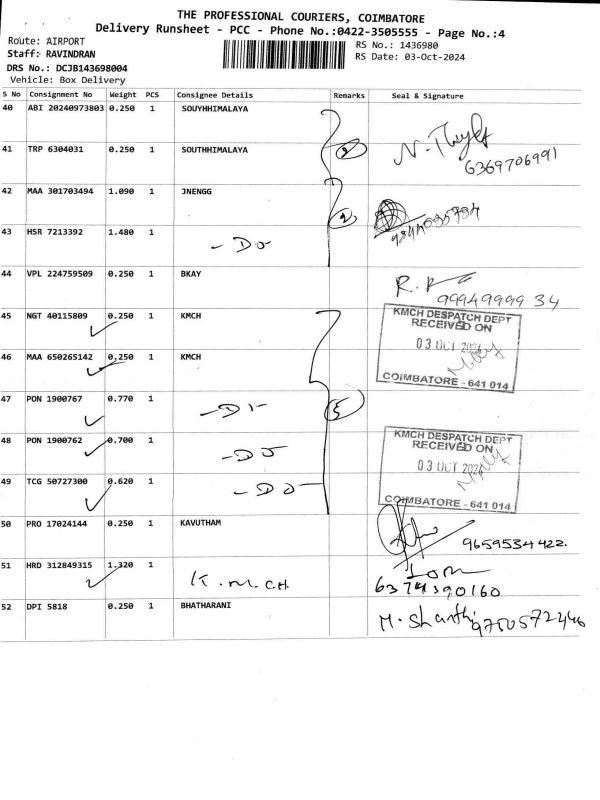 THE PROFESSIONAL COURIERS, COIMBATORE
Delivery Runsheet - PCC - Phone No.:0422-3505555 - Page No.:4
Route: AIRPORT
RS No.: 1436980
Staff: RAVINDRAN
RS Date: 03-Oct-2024
DRS No.: DCJB143698004
Vehicle: Box Delivery
S No Consignment No Weight PCS Consignee Details Remarks Seal & Signature
40 ABI 20240973803 0.250 1 SOUYHHIMALAYA
41 TRP 6304031 0.250 1 SOUTHHIMALAYA 2
6369706991
42 MAA 301703494 1.090 1 JNENGG 2
43 HSR 7213392 1.480 1 - Do
44 VPL 224759509 0.250 1 BKAY
9994999934
45 NGT 40115809 0.250 1 KMCH
KMCH DESPATCH DEPT
RECEIVED ON
03 OCT 2024
COIMBATORE - 641 014
46 MAA 650265142 0.250 1 KMCH
47 PON 1900767 0.770 1 - Do - 5
48 PON 1900762 0.700 1 - Do
KMCH DESPATCH DEPT
RECEIVED ON
03 OCT 2024
COIMBATORE - 641 014
49 TCG 50727300 0.620 1 - Do -
50 PRO 17024144 0.250 1 KAVUTHAM
9659534422.
51 HRD 312849315 1.320 1 K.M.CH
6374390160
52 DPI 5818 0.250 1 BHATHARANI
M. Shanthi 9750572246